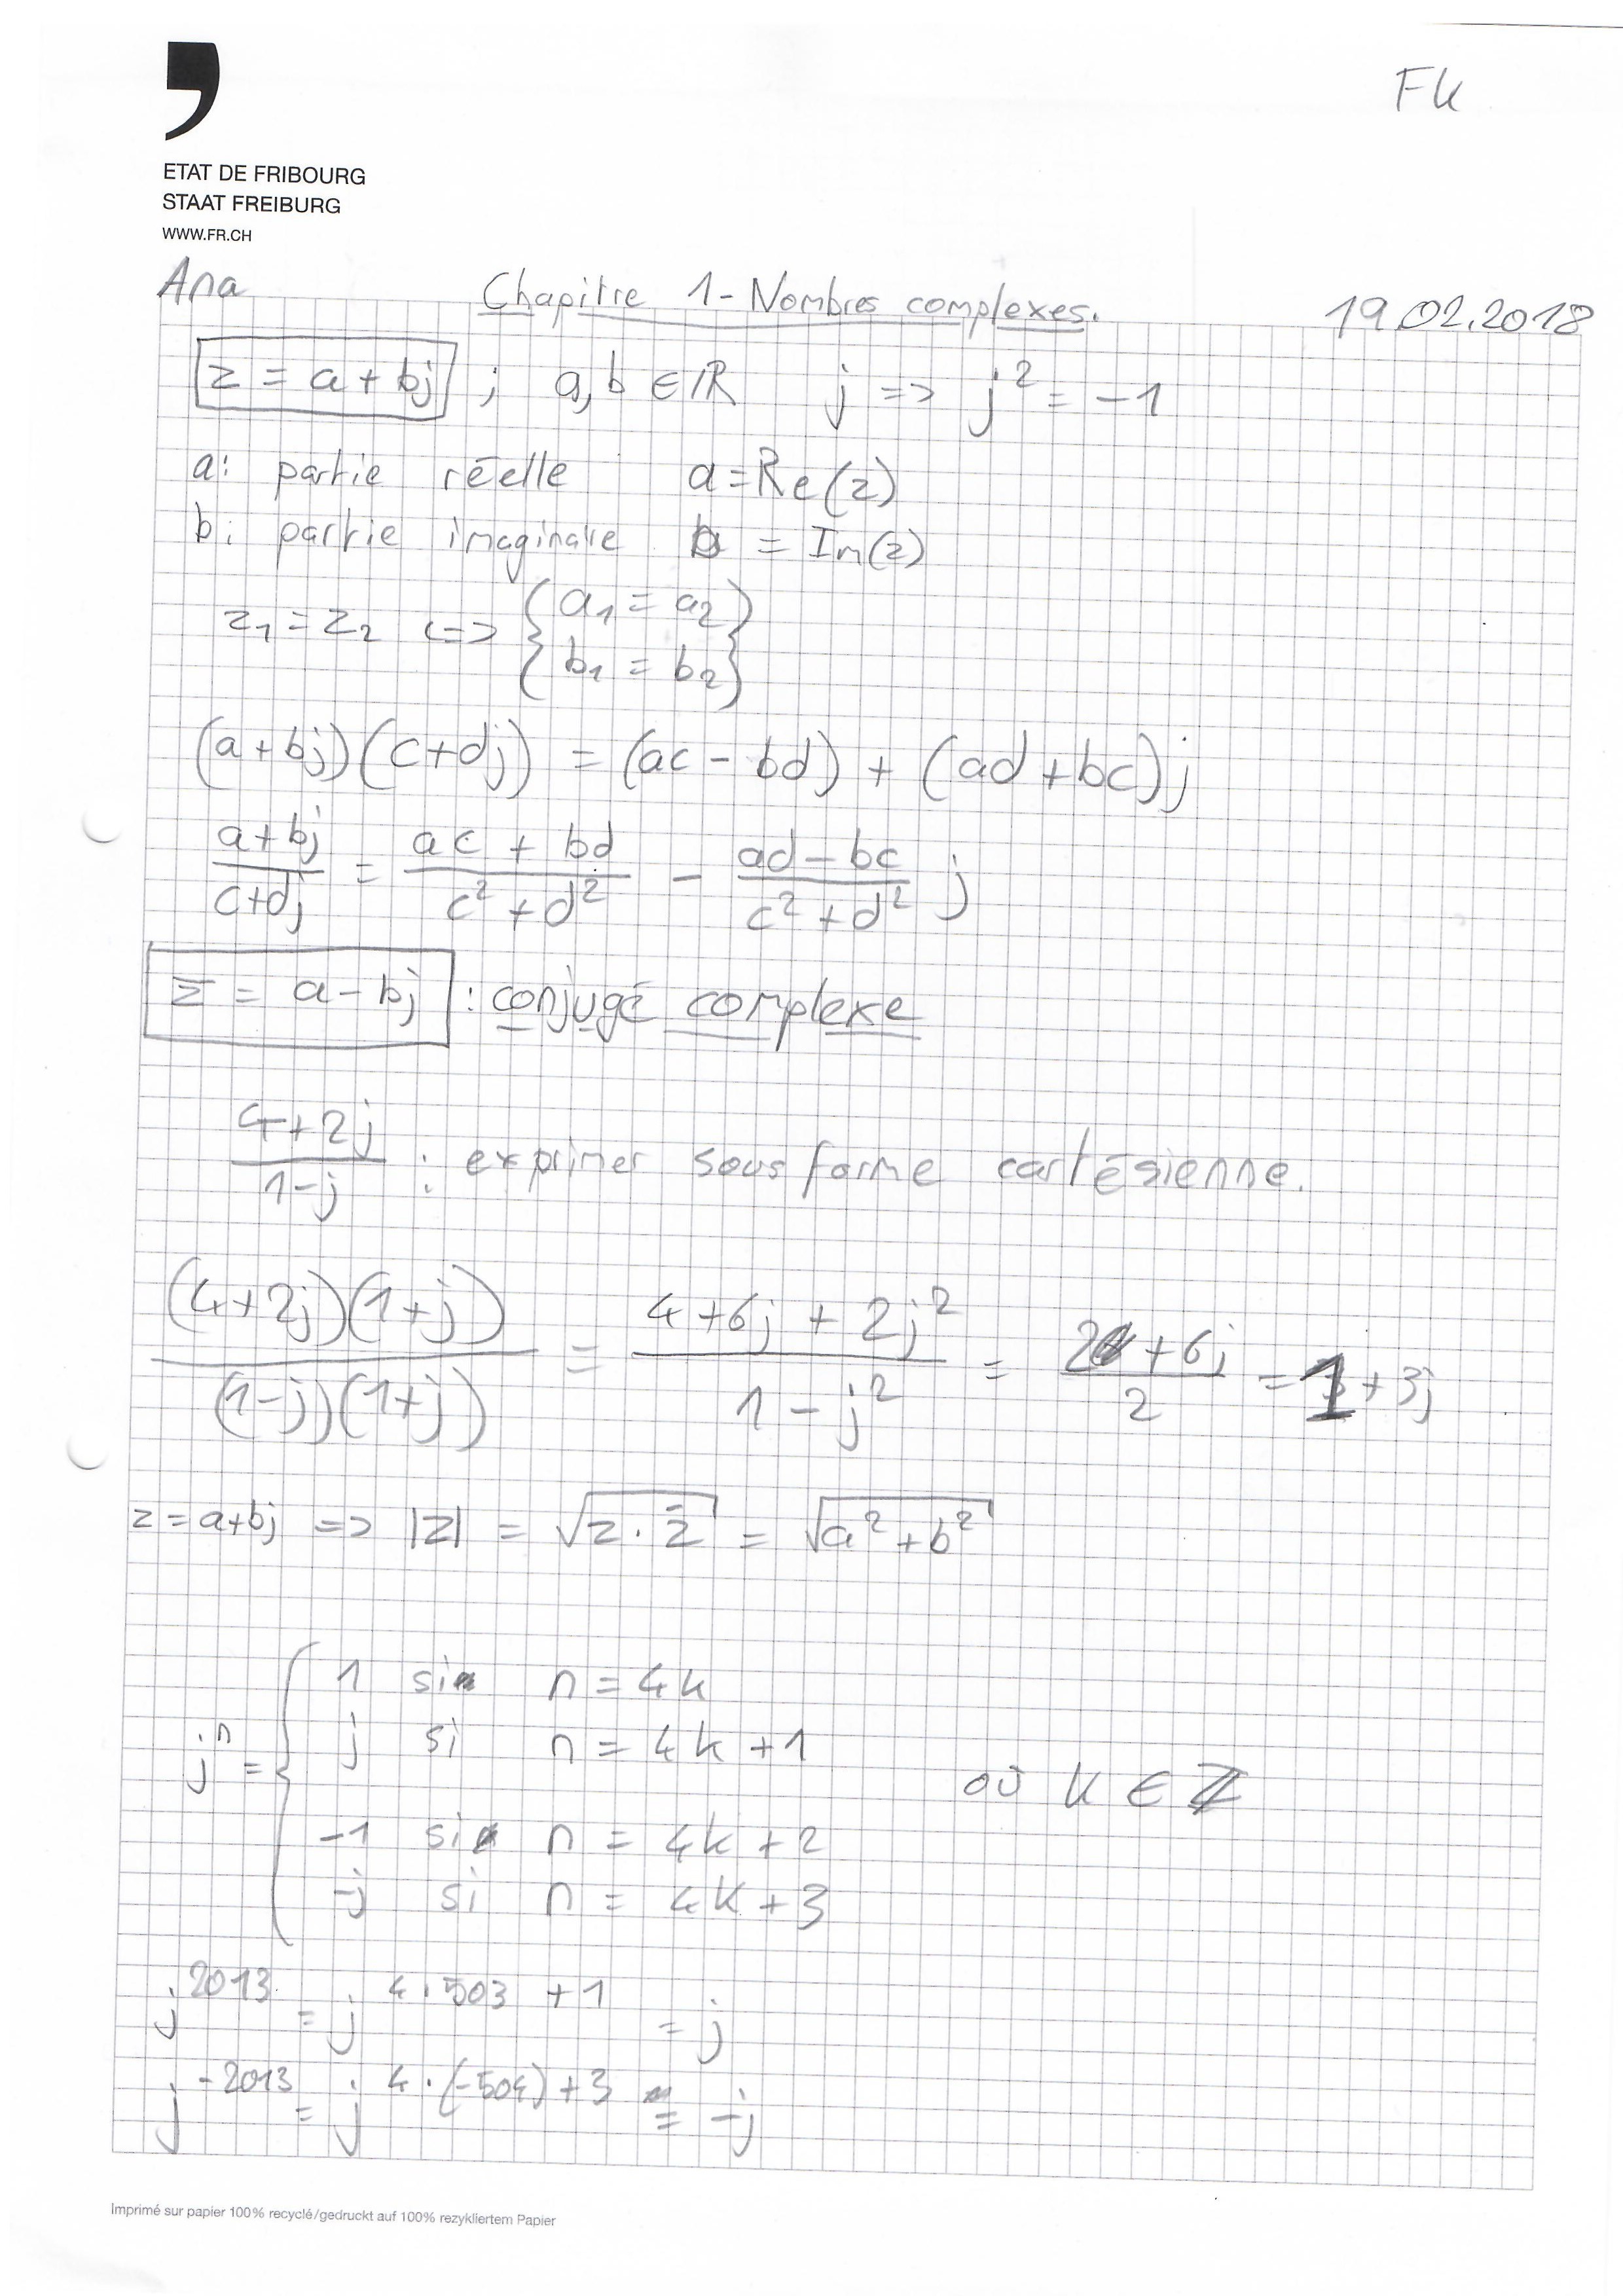 Fk
ETAT DE FRIBOURG
STAAT FREIBURG
WWW.FR.CH
Ana Chapitre 1 - Nombres complexes. 19.02.2018
z = a + bj ; a, b ∈ ℝ j => j² = -1
a: partie réelle a = Re(z)
b: partie imaginaire b = Im(z)
z₁ = z₂ <=> { a₁ = a₂
b₁ = b₂ }
(a+bj)(c+dj) = (ac - bd) + (ad + bc)j
(a+bj)/(c+dj) = (ac + bd)/(c² + d²) - (ad - bc)/(c² + d²) j
z̄ = a - bj : conjugé complexe
(4+2j)/(1-j) : exprimer sous forme cartésienne.
((4+2j)(1+j))/((1-j)(1+j)) = (4 + 6j + 2j²)/(1 - j²) = (2 + 6j)/2 = 1 + 3j
z = a+bj => |z| = √(z · z̄) = √(a² + b²)
1 si n = 4k
j si n = 4k + 1
jⁿ = { où k ∈ ℤ
-1 si n = 4k + 2
-j si n = 4k + 3
j^2013 = j^(4·503 + 1) = j
j^-2013 = j^(4·(-504) + 3) = -j
Imprimé sur papier 100% recyclé/gedruckt auf 100% rezykliertem Papier